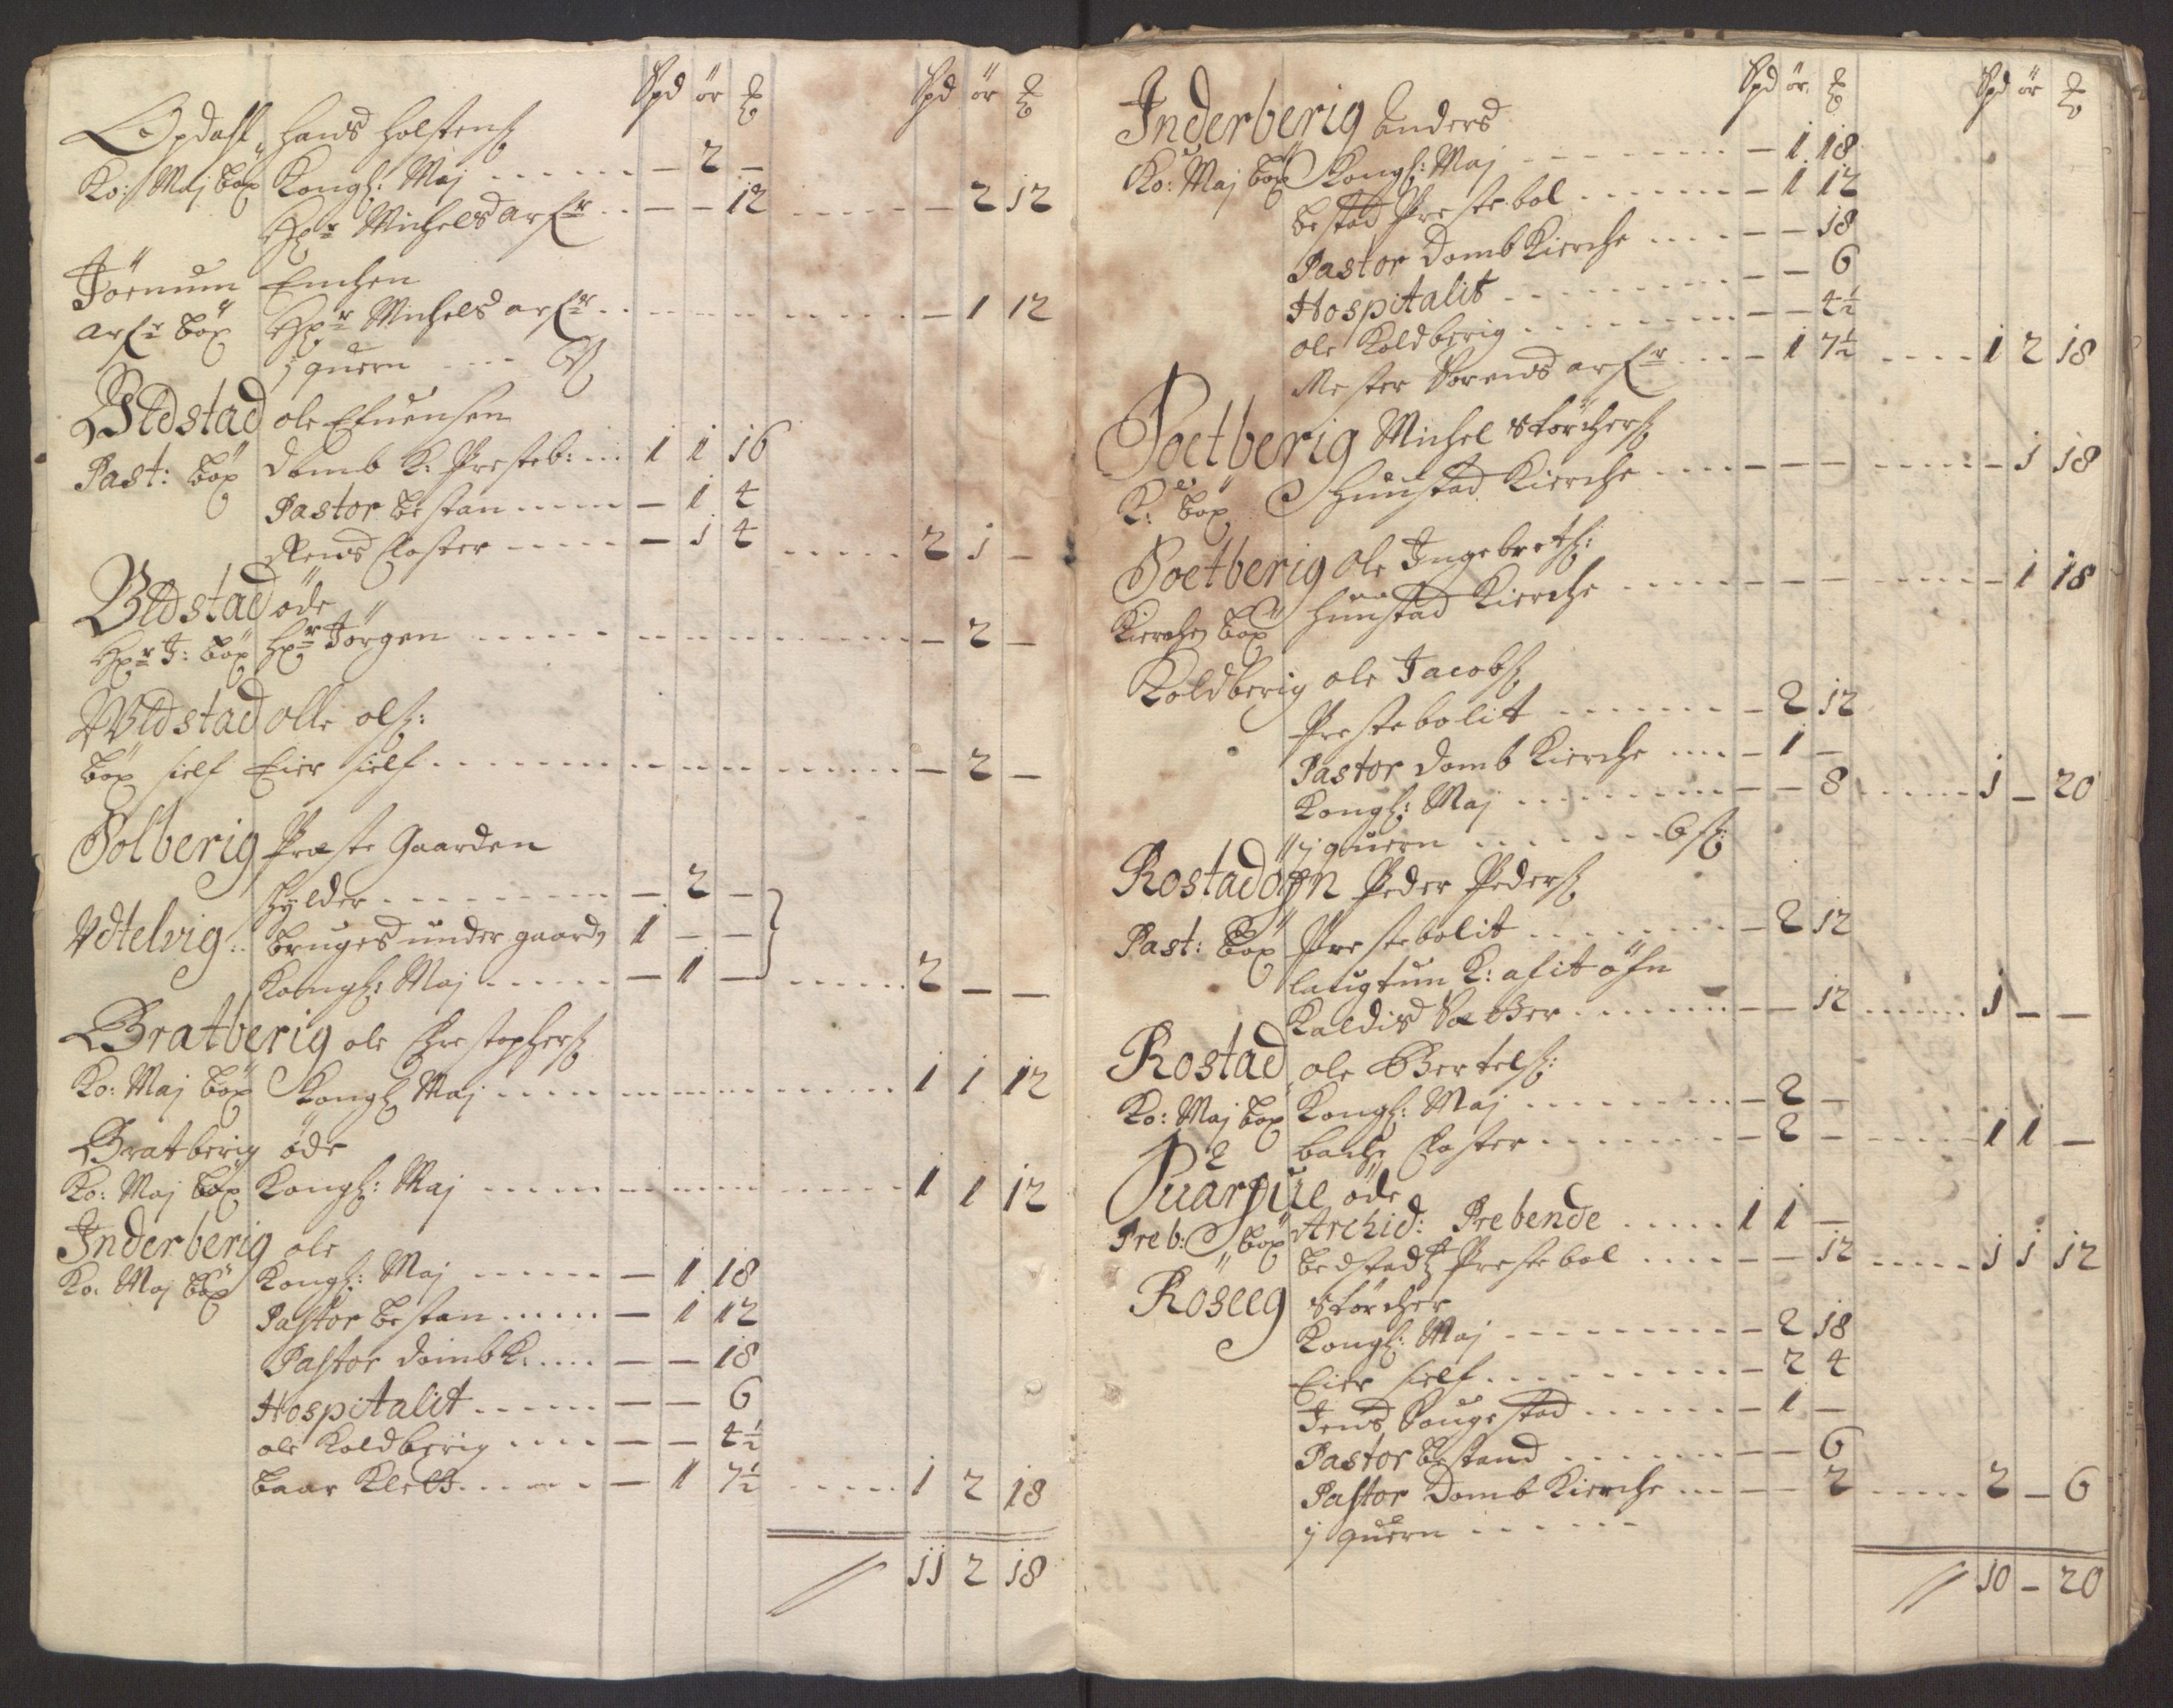 Spd ör Spd ör
Opdahl Hans Holstens
Ko: Maj böx Kongl: Maj ...... – 2 –
Hr Michels arfr .. – – 12 ...... – 2 12
Jörnum Enchen
Arfr böx Hr Michels arfr ...... – 1 12
j quern ...
Bldstad ole Efuensen
Past: böx Domb K: Presteb: ... 1 1 16
Pastor bestan ..... – 1 4
Reins Closter ..... – j 4 ..... 2 j –
Bldstad öde
Hr J: böx Hr Jörgen ...... – 2 –
Vldstad olle ols:
böx sielf Eier sielf ...... – 2 –
Solberig Præste Gaarden
skylder ........ – 2 –
Vdtelvig: bruges under gaard 1 – –
Kongl: Maj ...... – 1 – ...... 2 – –
Bratberig ole Christophers
Ko: Maj böx Kongl Maj ...... 1 1 12
Bratberig öde
Ko: Maj böx Kongl: Maj ...... 1 1 12
Inderberig ole
Ko: Maj böx Kongl: Maj ...... – 1 18
Pastor bestan ..... – 1 12
Pastor Domb K: .... – – 18
Hospitalit ...... – – 6
ole Koldberig .... – – 4½
baar Kleth ...... – 1 7½ ..... 1 2 18
// jj 2 j8
Spd ör Spd ör
Inderberig Anders
Ko: Maj böx Kongl: Maj ........ – 1 18
bestad Prestebol ...... – 1 12
Pastor Domb Kierche .... – – 18
Hospitalit ........ – – 6
ole Koldberig ........ – – 4½
Mester Sörens arfr ... – 1 7½ .... 1 2 18
Soetberig Michel Störchers
K: böx Hunstad Kierche .... – – – ..... – j 18
Soetberig ole Ingebreths:
Kierchen böx Hunstad Kierche .... – – – ..... – 1 18
Koldberig ole Jacobs
Prestebolit ....... – 2 12
Pastor Domb Kierche ... – 1 –
Kongl: Maj ........ – – 8 ..... j – 20
j quern ......
Rostadöen Peder Peders
Past: böx Prestebolit ....... – 2 12
laugtun K: afit öfn
Kaldis Sæ ....... – – 12 ..... j – –
Rostad ole Bertels:
Ko: Maj böx Kongl: Maj ........ – 2 –
bache Closter ........ – 2 – ..... 1 1 –
öde
Preb: böx Archid: Prebende ..... 1 1 –
bedstad Prestebol .... – – 12 ..... j j 12
Röseeg Störcher
Kongl: Maj ........ – 2 18
Eier sielf ........ – 2 4
Jens Saugestad ...... – 1 –
Pastor bestand ...... – – 6
Pastor Domb Kierche ... – – 2 ..... 2 – 6
j quern ......
// 10 – 20